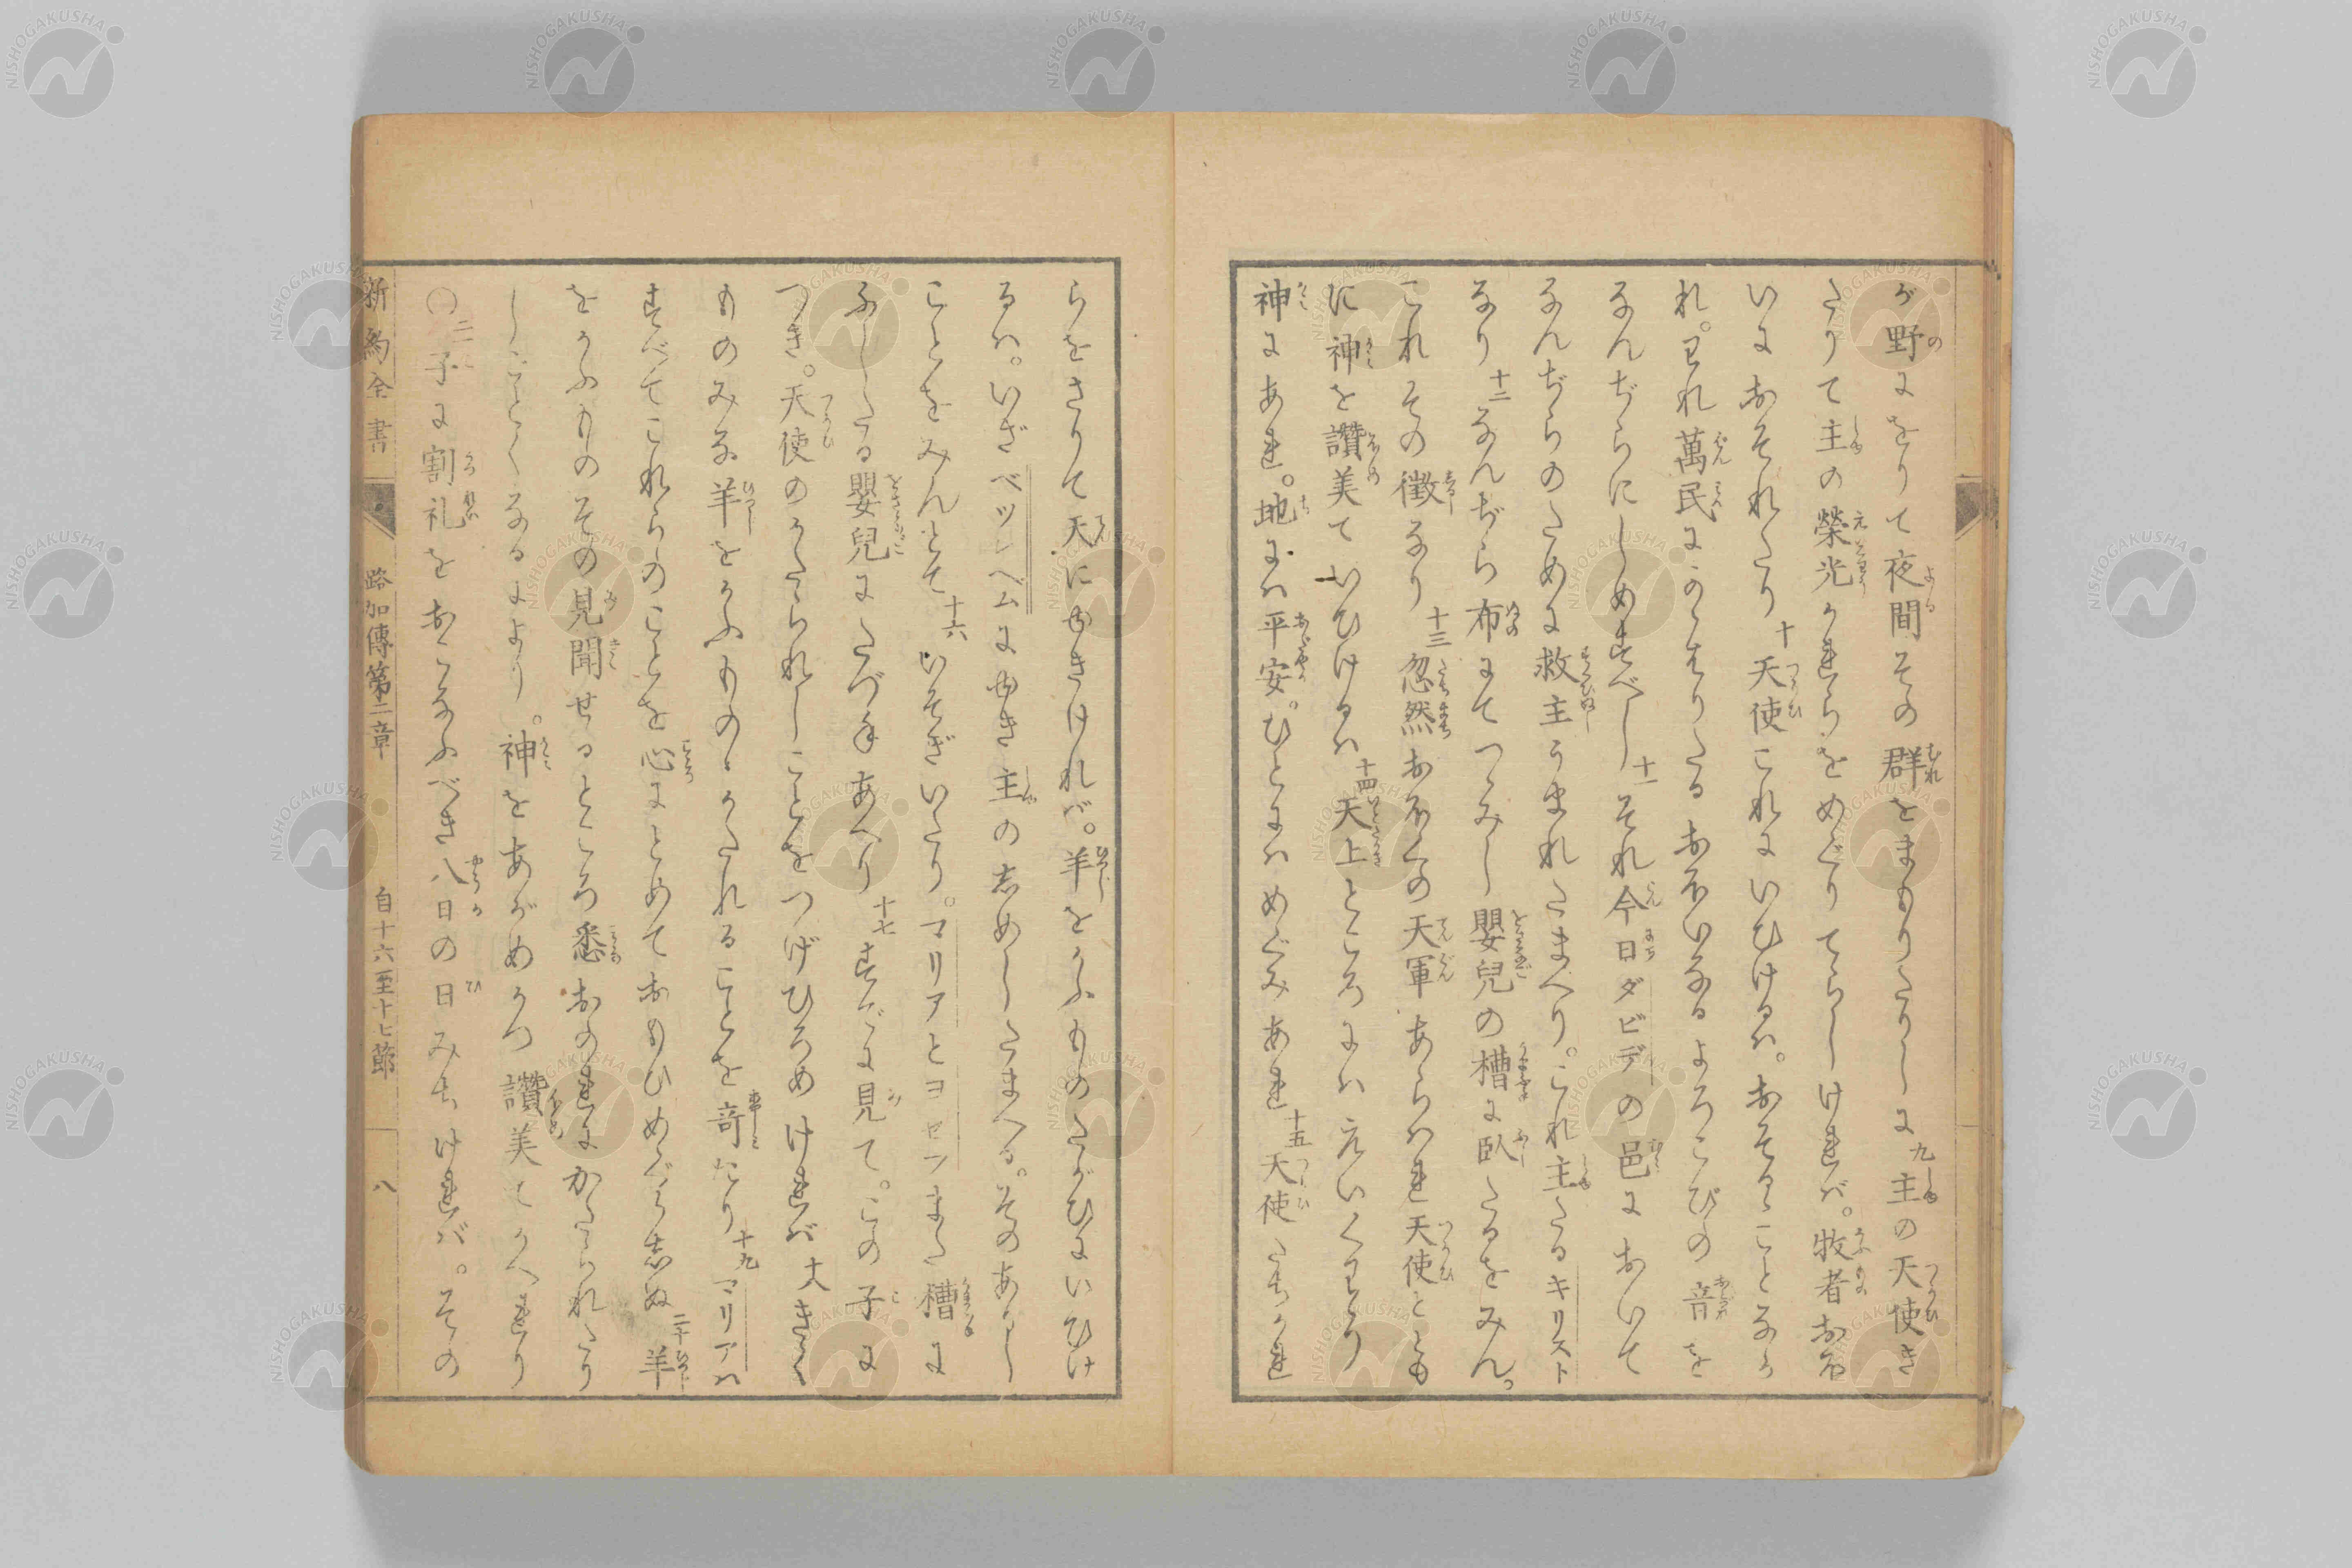 が野にをりて夜間その群をまもりたりしに九主の天使き
たりて主の榮光かれらをめぐりてらしければ。牧者おほ
いにおそれたり十天使これにいひけるハ。おそるゝことなか
れ。われ萬民にかゝはりたるおほいなるよろこびの音を
なんぢらにしめすべし十一それ今日ダビデの邑において
なんぢらのために救主うまれたまへり。これ主たるキリスト
なり十二なんぢら布にてつゝみし嬰兒の槽に臥たるをみん。
これその徴なり十三忽然おほくの天軍あらハれ天使とゝも
に神を讃美ていひけるハ十四天上ところにハ えいくわう
神にあれ。地にハ平安。ひとにハめぐみあれ十五天使たちかれ
らをさりて天にゆきければ。羊をかふものたがひにいひけ
るハ。いざベツレヘムにゆき主の志めしたまへる。そのありし
ことをみんとて十六いそぎいたり。マリアとヨセフまた槽に
ふしたる嬰兒にたづねあへり十七すでに見て。この子に
つき。天使のかたられしことをつげひろめければ大きく
ものみな羊をかふものゝかたれることを奇たり十九マリアハ
すべてこれらのことを心にとめておもひめぐらしぬ二十羊
をかふものその見聞せるところ悉おのれにかたられたり
しごとくなるにより。神をあがめかつ讃美てかへれり
〇二一子に割礼をおこなふべき八日の日みちければ。その
新約全書 路加傳第二章 自十六至十七節 八
NISHOGAKUSHA